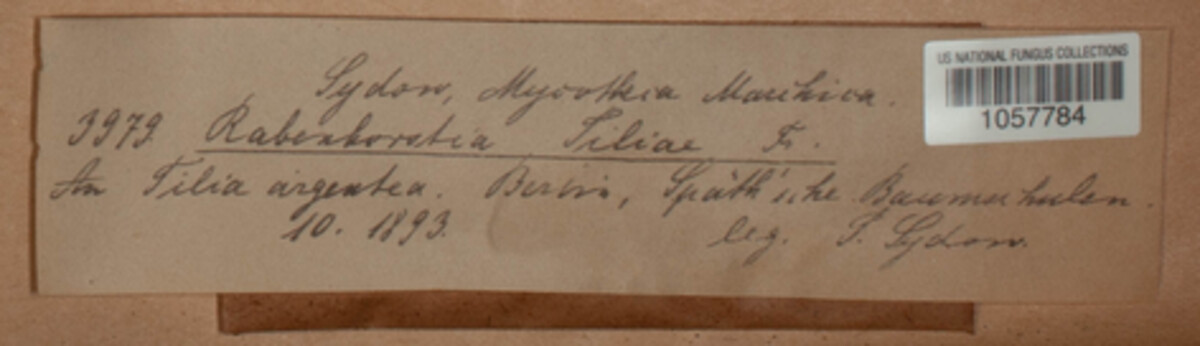 Sydow, Mycotheca Marchica.
3979. Rabenhorstia Tiliae Fr.
An Tilia argentea. Berlin, Späth'sche Baumschulen.
10. 1893. leg. P. Sydow.
US NATIONAL FUNGUS COLLECTIONS
1057784